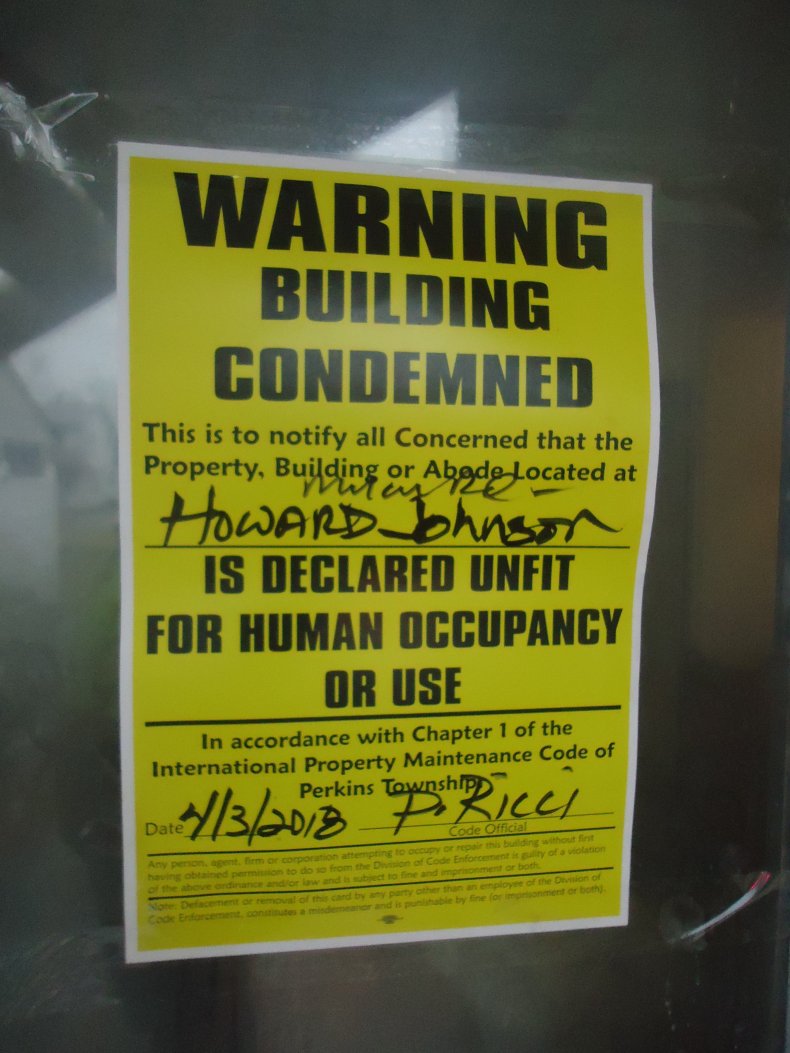 WARNING
BUILDING
CONDEMNED
This is to notify all Concerned that the
Property, Building or Abode Located at
HOWARD Johnson
IS DECLARED UNFIT
FOR HUMAN OCCUPANCY
OR USE
In accordance with Chapter 1 of the
International Property Maintenance Code of
Perkins Township
Date 4/3/2018 P. RICCI
Code Official
Any person, agent, firm or corporation attempting to occupy or repair this building without first
having obtained permission to do so from the Division of Code Enforcement is guilty of a violation
of the above ordinance and/or law and is subject to fine and imprisonment or both.
Note: Defacement or removal of this card by any party other than an employee of the Division of
Code Enforcement, constitutes a misdemeanor and is punishable by fine (or imprisonment or both).